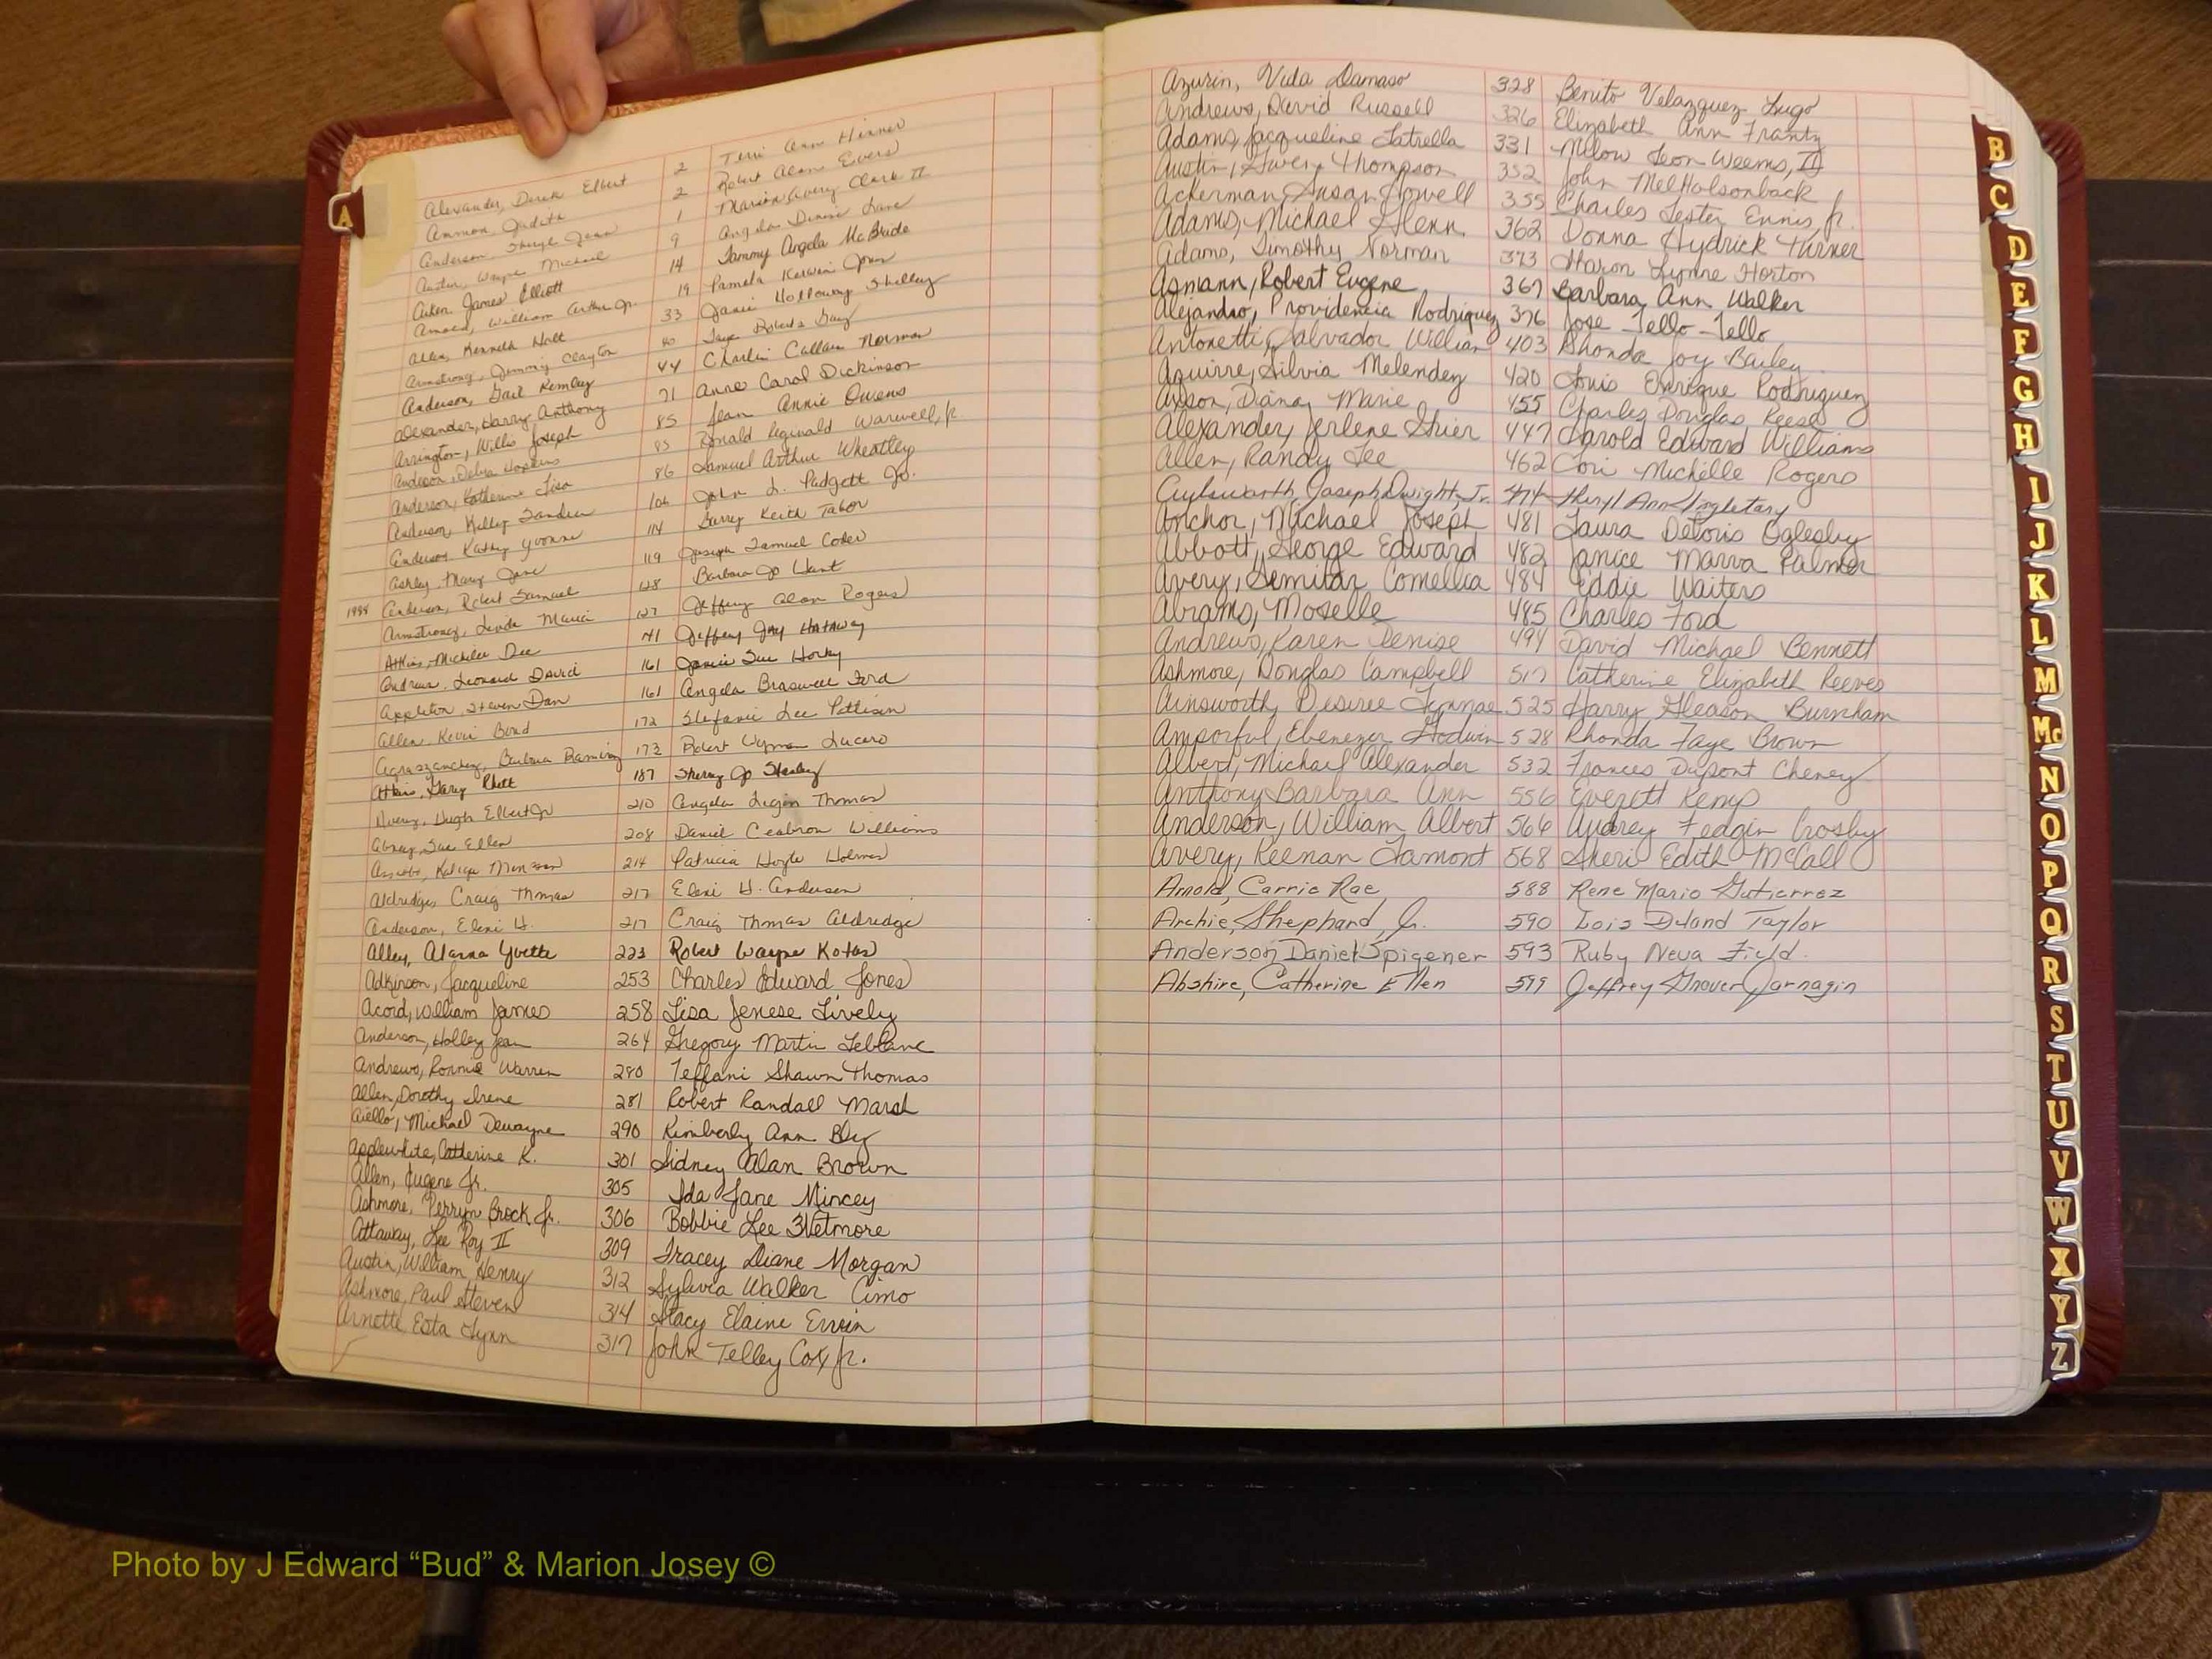 A
Alexander, Derek Elbert 2 Terri Ann Hinner
Ammon, Judith 2 Robert Alan Evers
Anderson, Sheryl Jean 1 Marion Avery Clark II
Austin, Wayne Michael 9 Angela Denise Lane
Aiken, James Elliott 14 Tammy Angela McBride
Arnold, William Arthur Jr. 19 Pamela Kerwin
Allen, Kenneth Holt 33 Janie Holloway Shelley
Armstrong, Jimmy Clayton 40 Faye Roberts
Anderson, Gail Remley 44 Charlie Callam Norman
Alexander, Harry Anthony 71 Anne Carol Dickinson
Arrington, Willis Joseph 85 Jean Annie Owens
Anderson, Debra Hopkins 85 Donald Reginald Warwell, Jr.
Anderson, Katherine Lisa 86 Samuel Arthur Wheatley
Anderson, Kelley Sandra 106 John L. Padgett Jr.
Anderson, Kathy Yvonne 114 Barry Keith Tabor
Ashley, Mary Jane 119 Joseph Samuel Coder
1988 Anderson, Robert Samuel 128 Barbara Jo Hunt
Armstrong, Linda Maria 127 Jeffery Alan Rogers
Atkins, Michelle Dee 141 Jeffery Jay Hathaway
Andrews, Leonard David 161 Janie Sue
Appleton, Steven Dan 161 Angela Braswell Ford
Allen, Kevin Bond 172 Stefanie Lee Pattison
Barbara 173 Robert Wyman Lucero
Atkins, Gary Rhett 187 Sherry Jo Stanley
Avery, Hugh Elbert Jr 210 Angela Ligon Thomas
Abney, Sue Ellen 208 Daniel Ceabron Williams
214 Patricia Hoyle Holmes
Aldridge, Craig Thomas 217 Eleni H. Anderson
Anderson, Eleni H. 217 Craig Thomas Aldridge
Alley, Alarna Yvette 223 Robert Wayne Kotas
Adkinson, Jacqueline 253 Charles Edward Jones
Acord, William James 258 Lisa Jenese Lively
Anderson, Holley Jean 264 Gregory Martin Leblanc
Andrews, Ronnie Warren 280 Teffani Shawn Thomas
Allen, Dorothy Irene 281 Robert Randall Marsh
Aiello, Michael Dewayne 290 Kimberly Ann Bly
Applewhite, Catherine K. 301 Sidney Alan Brown
Allen, Eugene Jr. 305 Ida Jane Mincey
Ashmore, Perryn Brock Jr. 306 Bobbie Lee Wetmore
Attaway, Lee Roy II 309 Tracey Diane Morgan
Austin, William Henry 312 Sylvia Walker Cimo
Ashmore, Paul Steven 314 Stacy Elaine Erwin
Arnette Esta Lynn 317 John Telley Cox Jr.
Azurin, Vida Damaso 328 Benito Velazquez Lugo
Andrews, David Russell 326 Elizabeth Ann Frantz
Adams, Jacqueline Latrella 331 Milow Leon Weems, II
Austin, Gwen Thompson 352 John Mel Holsonback
Ackerman, Susan Howell 355 Charles Lester Ennis, Jr.
Adams, Michael Glenn 362 Donna Hydrick Turner
Adams, Timothy Norman 373 Sharon Lynne Horton
Asmann, Robert Eugene 367 Barbara Ann Walker
Alejandro, Providencia Rodriguez 376 Jose Tello-Tello
Antonetti, Salvador William 403 Rhonda Joy Bailey
Aguirre, Silvia Melendez 420 Louis Enrique Rodriguez
Axson, Diana Marie 455 Charles Douglas Reese
Alexander, Jerlene Grier 447 Harold Edward Williams
Allen, Randy Lee 462 Cori Michelle Rogers
Aylsworth, Joseph Dwight, Jr. 474 Sheryl Ann Singletary
Anchor, Michael Joseph 481 Laura Deloris Oglesby
Abbott, George Edward 482 Janice Marva Palmer
Avery, Semilar Comellia 484 Eddie Waiters
Abrams, Moselle 485 Charles Ford
Andrews, Karen Denise 494 David Michael Bennett
Ashmore, Douglas Campbell 517 Catherine Elizabeth Reeves
Ainsworth, Desiree Lynnae 525 Harry Gleason Burnham
Amporful, Ebenezer Godwin 528 Rhonda Faye Brown
Albert, Michael Alexander 532 Frances Dupont Cheney
Anthony Barbara Ann 556 Everett Kemp
Anderson, William Albert 566 Audrey Fedgin Crosby
Avery, Keenan Lamont 568 Sheri Edith McCall
Arnold, Carrie Rae 588 Rene Mario Gutierrez
Archie, Shephard, Jr. 590 Lois Deland Taylor
Anderson, Daniel Spigener 593 Ruby Neva Field.
Abshire, Catherine Ellen 599 Jeffrey Grover Jarnagin
B
C
D
E
F
G
H
I
J
K
L
M
Mc
N
O
P
Q
R
S
T
U
V
W
X
Y
Z
Photo by J Edward “Bud” & Marion Josey ©